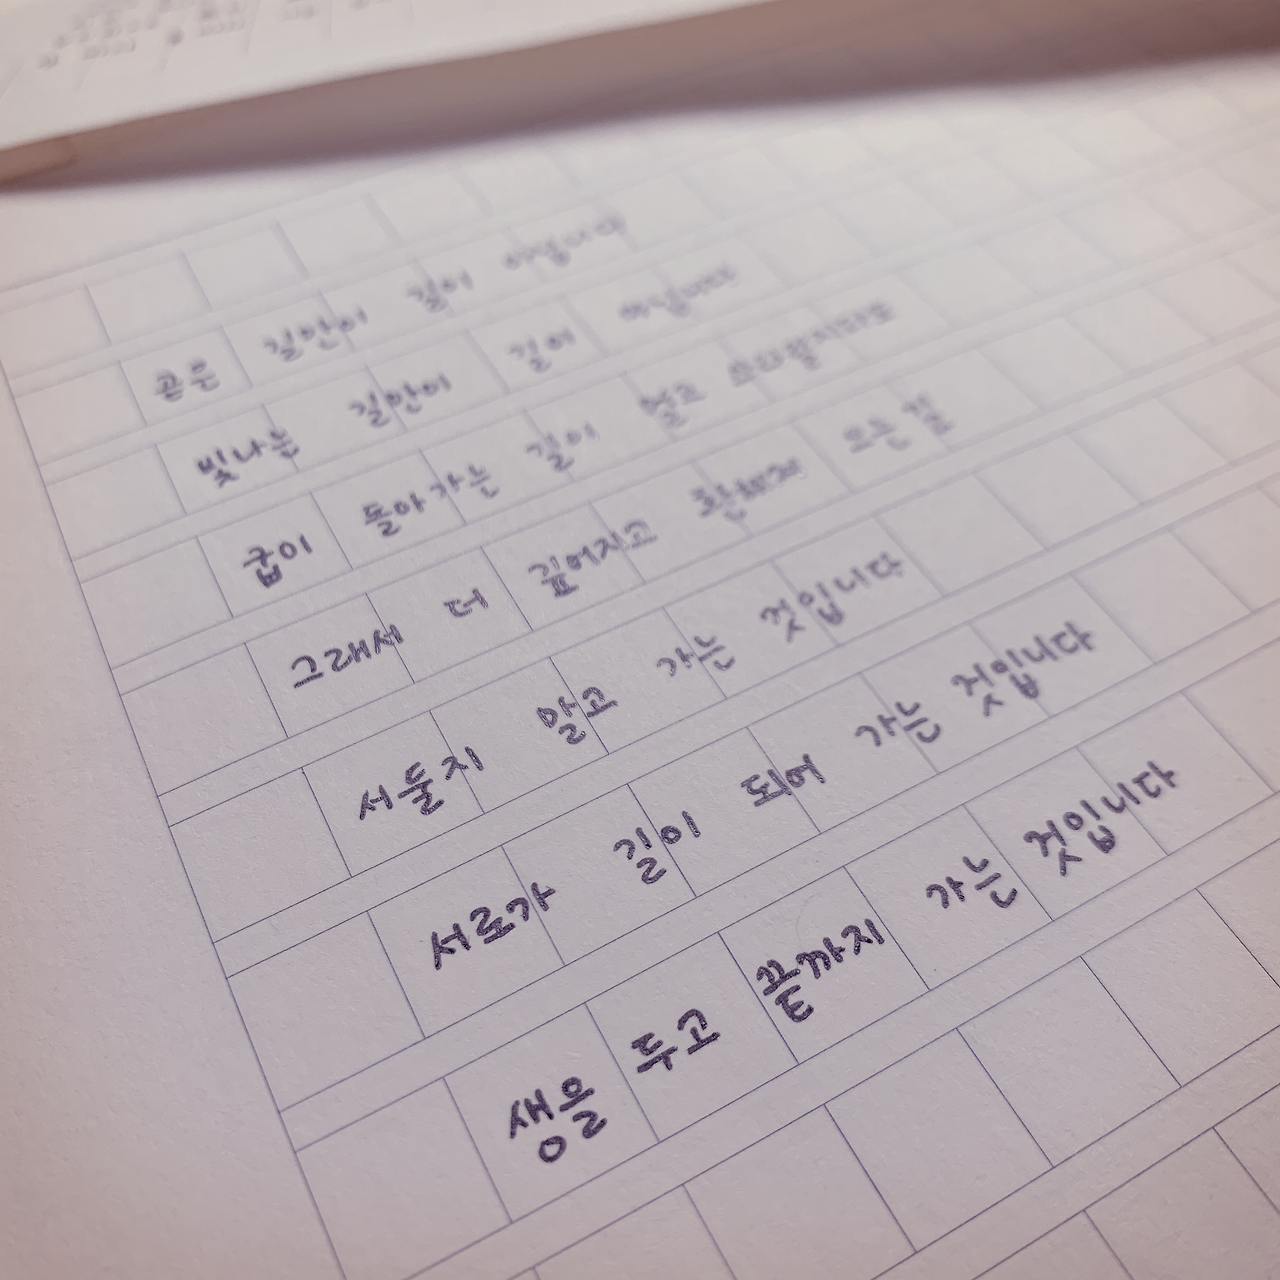 곧은 길만이 길이 아닙니다
빛나는 길만이 길이 아닙니다
굽이 돌아가는 길이 멀고 쓰라릴지라도
그래서 더 깊어지고 환해져 오는 길
서둘지 말고 가는 것입니다
서로가 길이 되어 가는 것입니다
생을 두고 끝까지 가는 것입니다